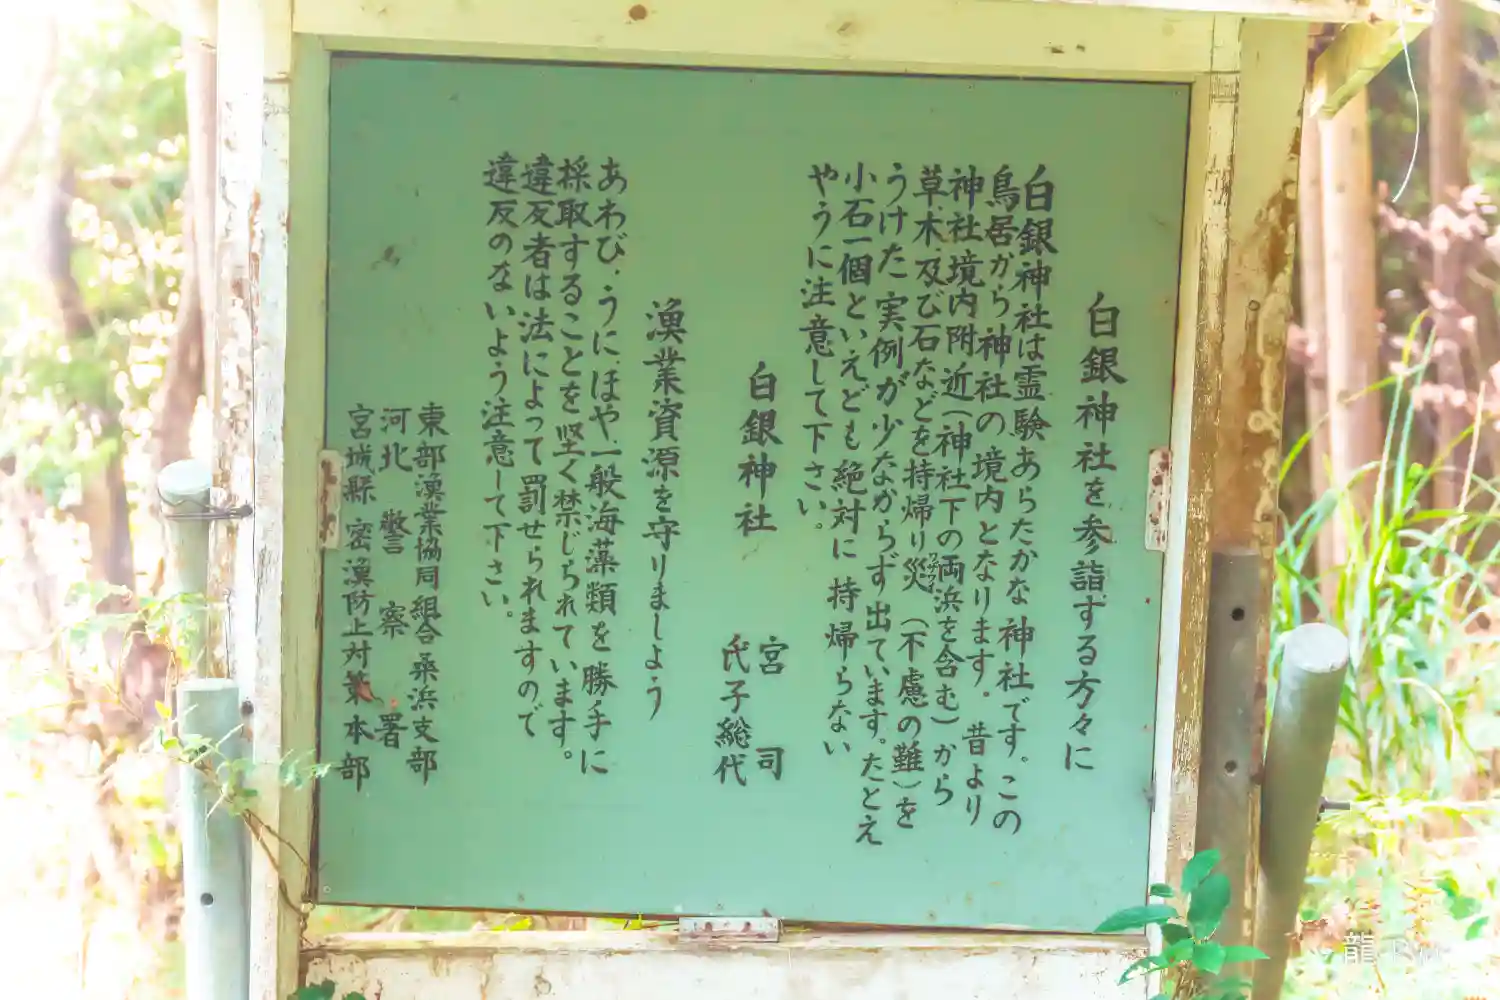 白銀神社を参詣する方々に
白銀神社は霊験あらたかな神社です。この
鳥居から神社の境内となります。昔より
神社境内附近(神社下の両浜を含む)から
草木及び石などを持帰り災(不慮の難)を
うけた実例が少なからず出ています。たとえ
小石一個といえども絶対に持帰らない
やうに注意して下さい。
白銀神社
宮司
氏子総代
漁業資源を守りましよう
あわび・うに・ほや、一般海藻類を勝手に
採取することを堅く禁じられています。
違反者は法によって罰せられますので
違反のないよう注意して下さい。
東部漁業協同組合桑浜支部
河北警察署
宮城縣密漁防止対策本部
龍